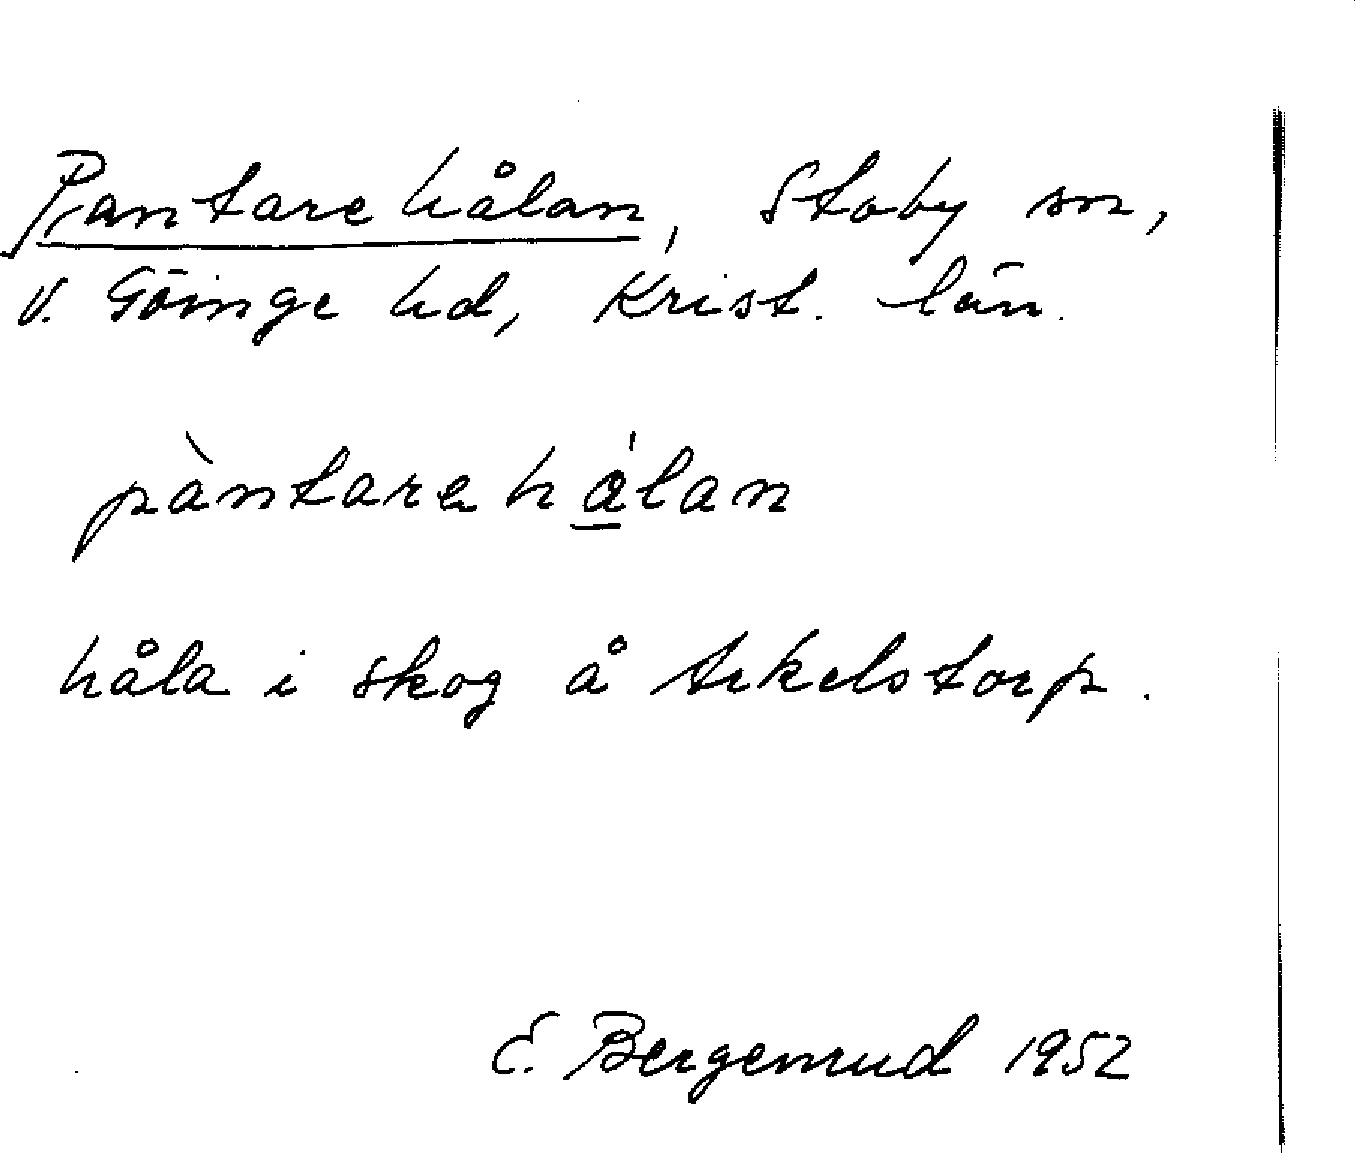 Pantarehålan, Stoby sn,
V. Göinge hd, Krist. län.
pàntarehålan
håla i skog å Arkelstorp.
E. Bergenrud 1952